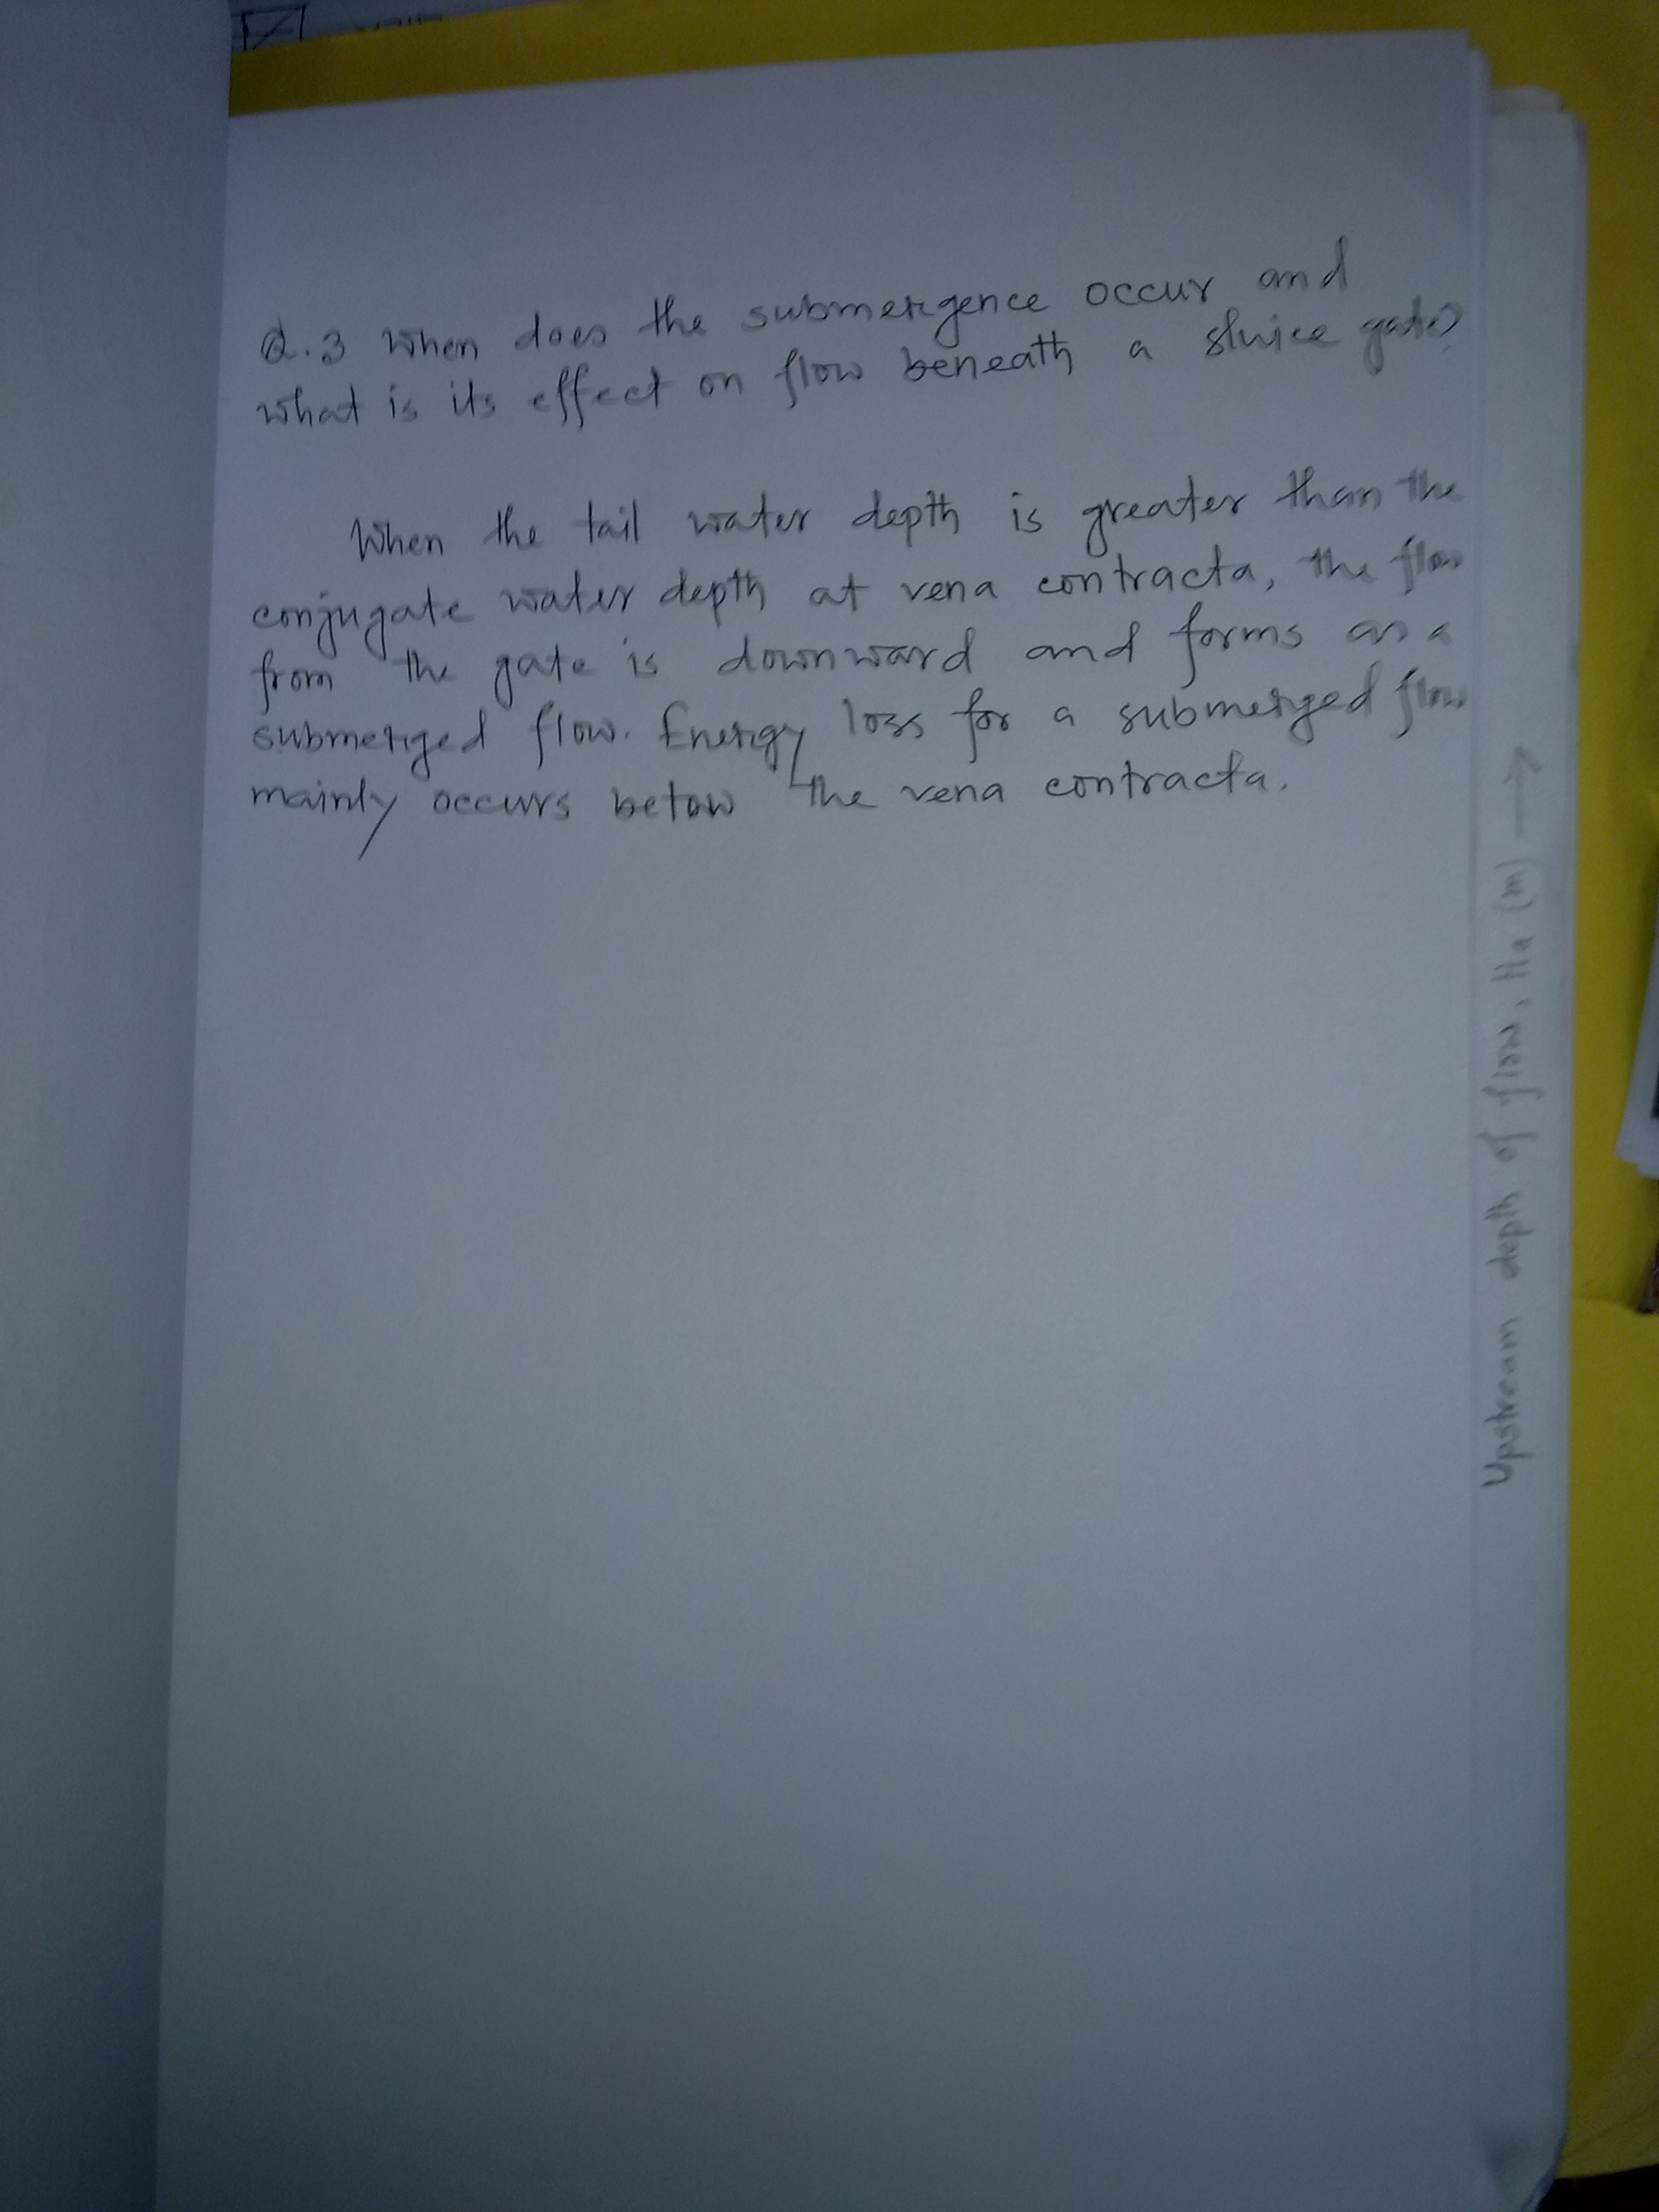 Q.3 When does the submergence occur and
what is its effect on flow beneath a sluice gate?
When the tail water depth is greater than the
conjugate water depth at vena contracta, the flow
from the gate is downward and forms as a
submerged flow. Energy loss for a submerged flow
mainly occurs below the vena contracta.
Upstream depth of flow, Ha (m) →